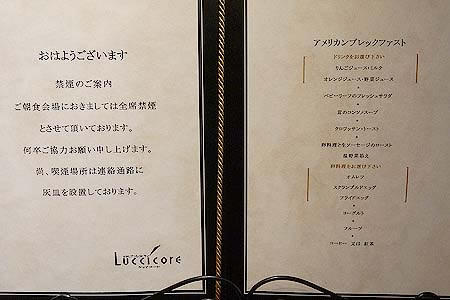 おはようございます
禁煙のご案内
ご朝食会場におきましては全席禁煙
とさせて頂いております。
何卒ご協力お願い申し上げます。
尚、喫煙場所は連絡通路に
灰皿を設置しております。
Luccicore
アメリカンブレックファスト
ドリンクをお選び下さい
りんごジュース・ミルク
オレンジジュース・野菜ジュース
*
ベビーリーフのフレッシュサラダ
*
豆のコンソメスープ
*
クロワッサン・トースト
*
卵料理と生ソーセージのロースト
温野菜添え
卵料理をお選び下さい
オムレツ
スクランブルドエッグ
フライドエッグ
*
ヨーグルト
*
フルーツ
*
コーヒー 又は 紅茶